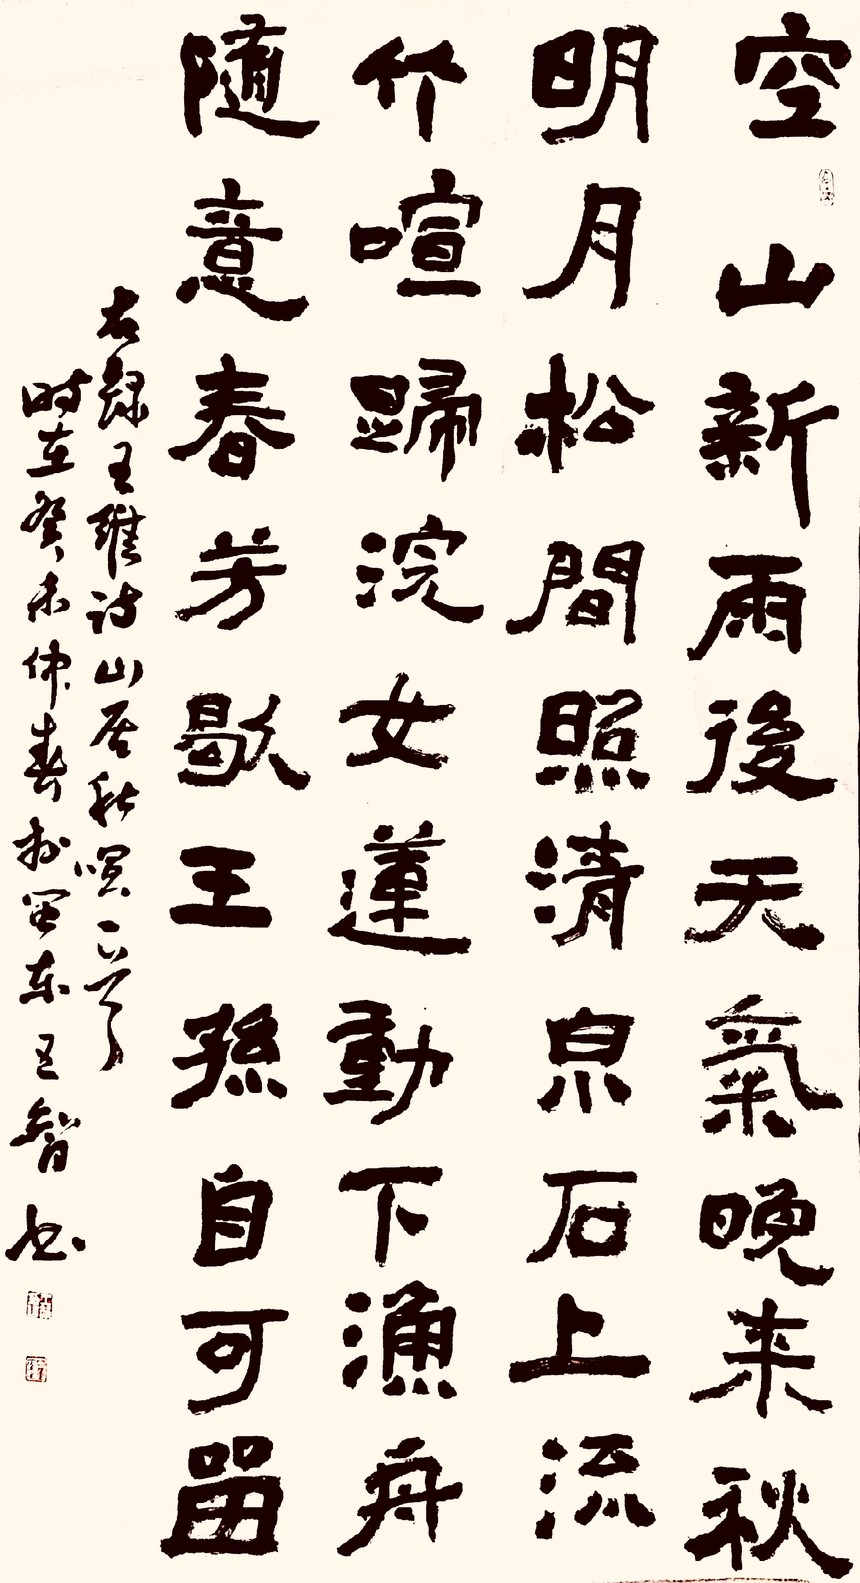 空山新雨後天氣晚来秋
明月松間照清泉石上流
竹喧歸浣女蓮動下漁舟
隨意春芳歇王孫自可留
右録王維诗山居秋暝一首
时在癸未仲春於闽东王智书